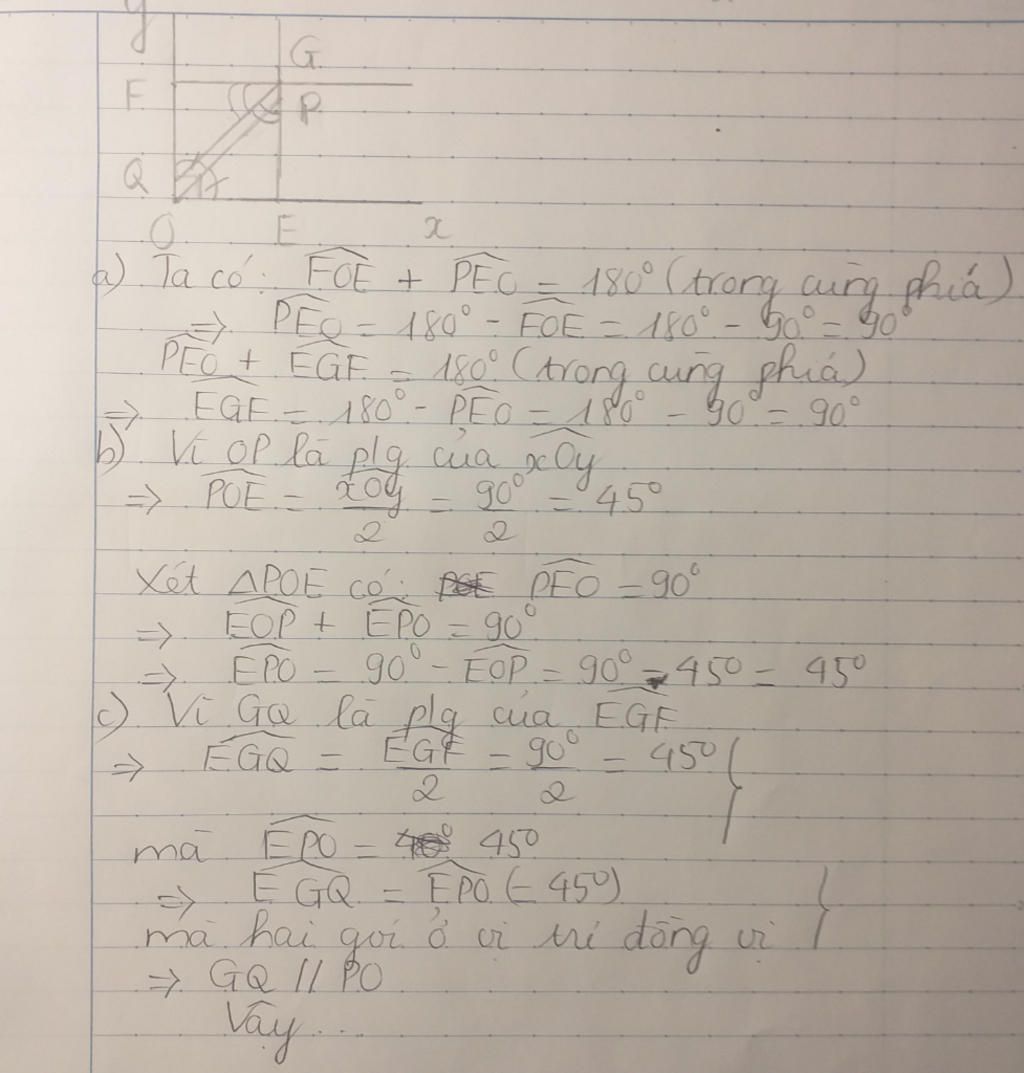 y
G
F
P
Q
O E x
a) Ta có: FOE + PEO = 180° (trong cùng phía)
=> PEO = 180° - FOE = 180° - 90° = 90°
PEO + EGF = 180° (trong cùng phía)
=> EGF = 180° - PEO = 180° - 90° = 90°
b) Vì OP là p/g của xOy
=> POE = xOy/2 = 90°/2 = 45°
Xét △POE có: PEO = 90°
=> EOP + EPO = 90°
=> EPO = 90° - EOP = 90° - 45° = 45°
c) Vì GQ là p/g của EGF
=> EGQ = EGF/2 = 90°/2 = 45° }
mà EPO = 45°
=> EGQ = EPO (= 45°) }
mà hai gói ở vị trí đồng vị
=> GQ // PO
Vậy...